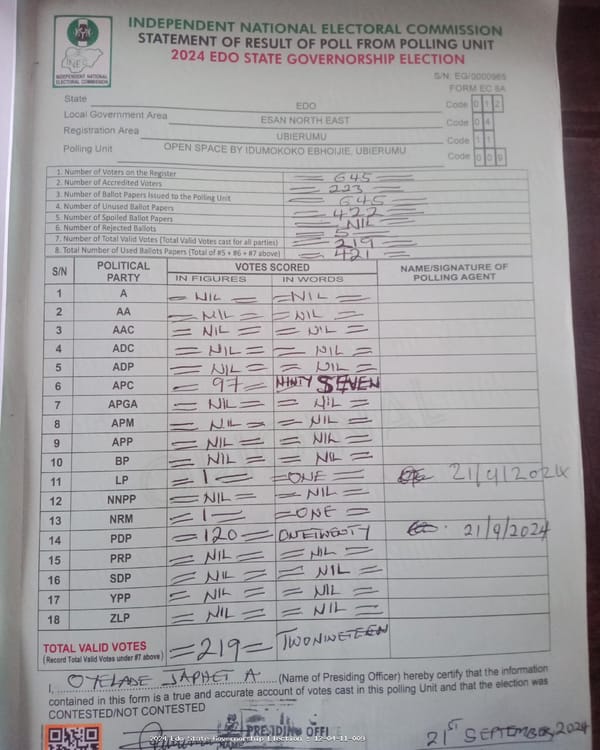 INDEPENDENT NATIONAL ELECTORAL COMMISSION
STATEMENT OF RESULT OF POLL FROM POLLING UNIT
2024 EDO STATE GOVERNORSHIP ELECTION
INEC
INDEPENDENT NATIONAL ELECTORAL COMMISSION
S/N: EG/0000985
FORM EC 8A
State EDO Code 0 1 2
Local Government Area ESAN NORTH EAST Code 0 4
Registration Area UBIERUMU Code 1 1
Polling Unit OPEN SPACE BY IDUMOKOKO EBHOIJIE, UBIERUMU Code 0 0 9
1. Number of Voters on the Register = 645 =
2. Number of Accredited Voters = 223 =
3. Number of Ballot Papers Issued to the Polling Unit = 645 =
4. Number of Unused Ballot Papers = 422 =
5. Number of Spoiled Ballot Papers = NIL =
6. Number of Rejected Ballots = 5 =
7. Number of Total Valid Votes (Total Valid Votes cast for all parties) = 219 =
8. Total Number of Used Ballots Papers (Total of #5 + #6 + #7 above) = 421 =
S/N POLITICAL PARTY VOTES SCORED NAME/SIGNATURE OF POLLING AGENT
IN FIGURES IN WORDS
1 A = NIL = = NIL =
2 AA = NIL = = NIL =
3 AAC = NIL = = NIL =
4 ADC = NIL = = NIL =
5 ADP = NIL = = NIL =
6 APC = 97 = NINTY SEVEN
7 APGA = NIL = = NIL =
8 APM = NIL = = NIL =
9 APP = NIL = = NIL =
10 BP = NIL = = NIL =
11 LP = 1 = = ONE = 21/9/2024
12 NNPP = NIL = = NIL =
13 NRM = 1 = = ONE =
14 PDP = 120 = ONETWENTY 21/9/2024
15 PRP = NIL = = NIL =
16 SDP = NIL = = NIL =
17 YPP = NIL = = NIL =
18 ZLP = NIL = = NIL =
TOTAL VALID VOTES = 219 = TWONINETEEN
(Record Total Valid Votes under #7 above)
I, OYELADE JAPHET A. (Name of Presiding Officer) hereby certify that the information
contained in this form is a true and accurate account of votes cast in this polling Unit and that the election was
CONTESTED/NOT CONTESTED
PRESIDING OFFI
2024 Edo State Governorship Election - 12-04-11-009
21ST SEPTEMBER, 2024